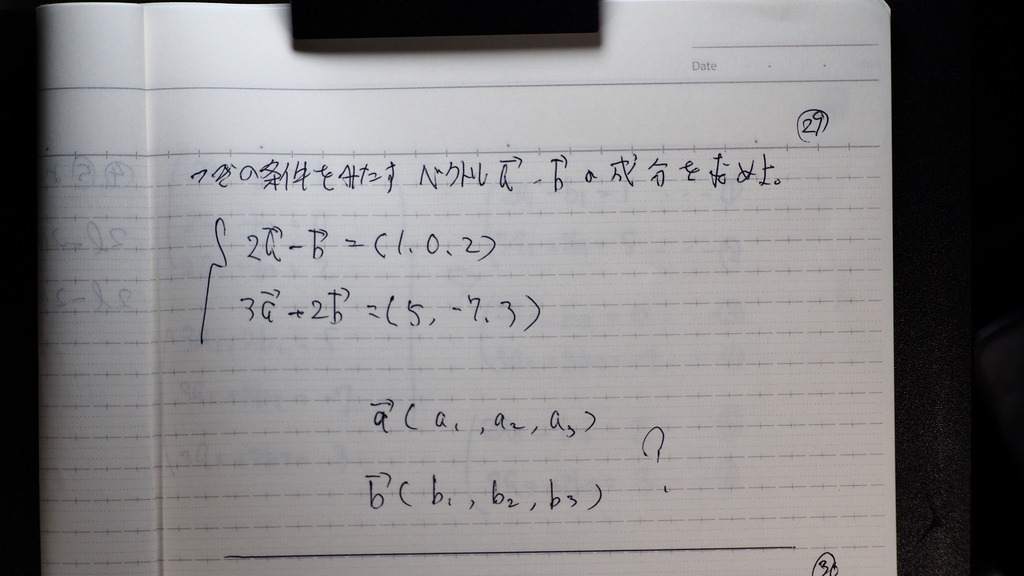 Date
㉙
つぎの条件をみたすベクトル a→, b→ の成分を求めよ。
2a→ - b→ = (1, 0, 2)
3a→ + 2b→ = (5, -7, 3)
a→ (a₁, a₂, a₃)
?
b→ (b₁, b₂, b₃)
㉚